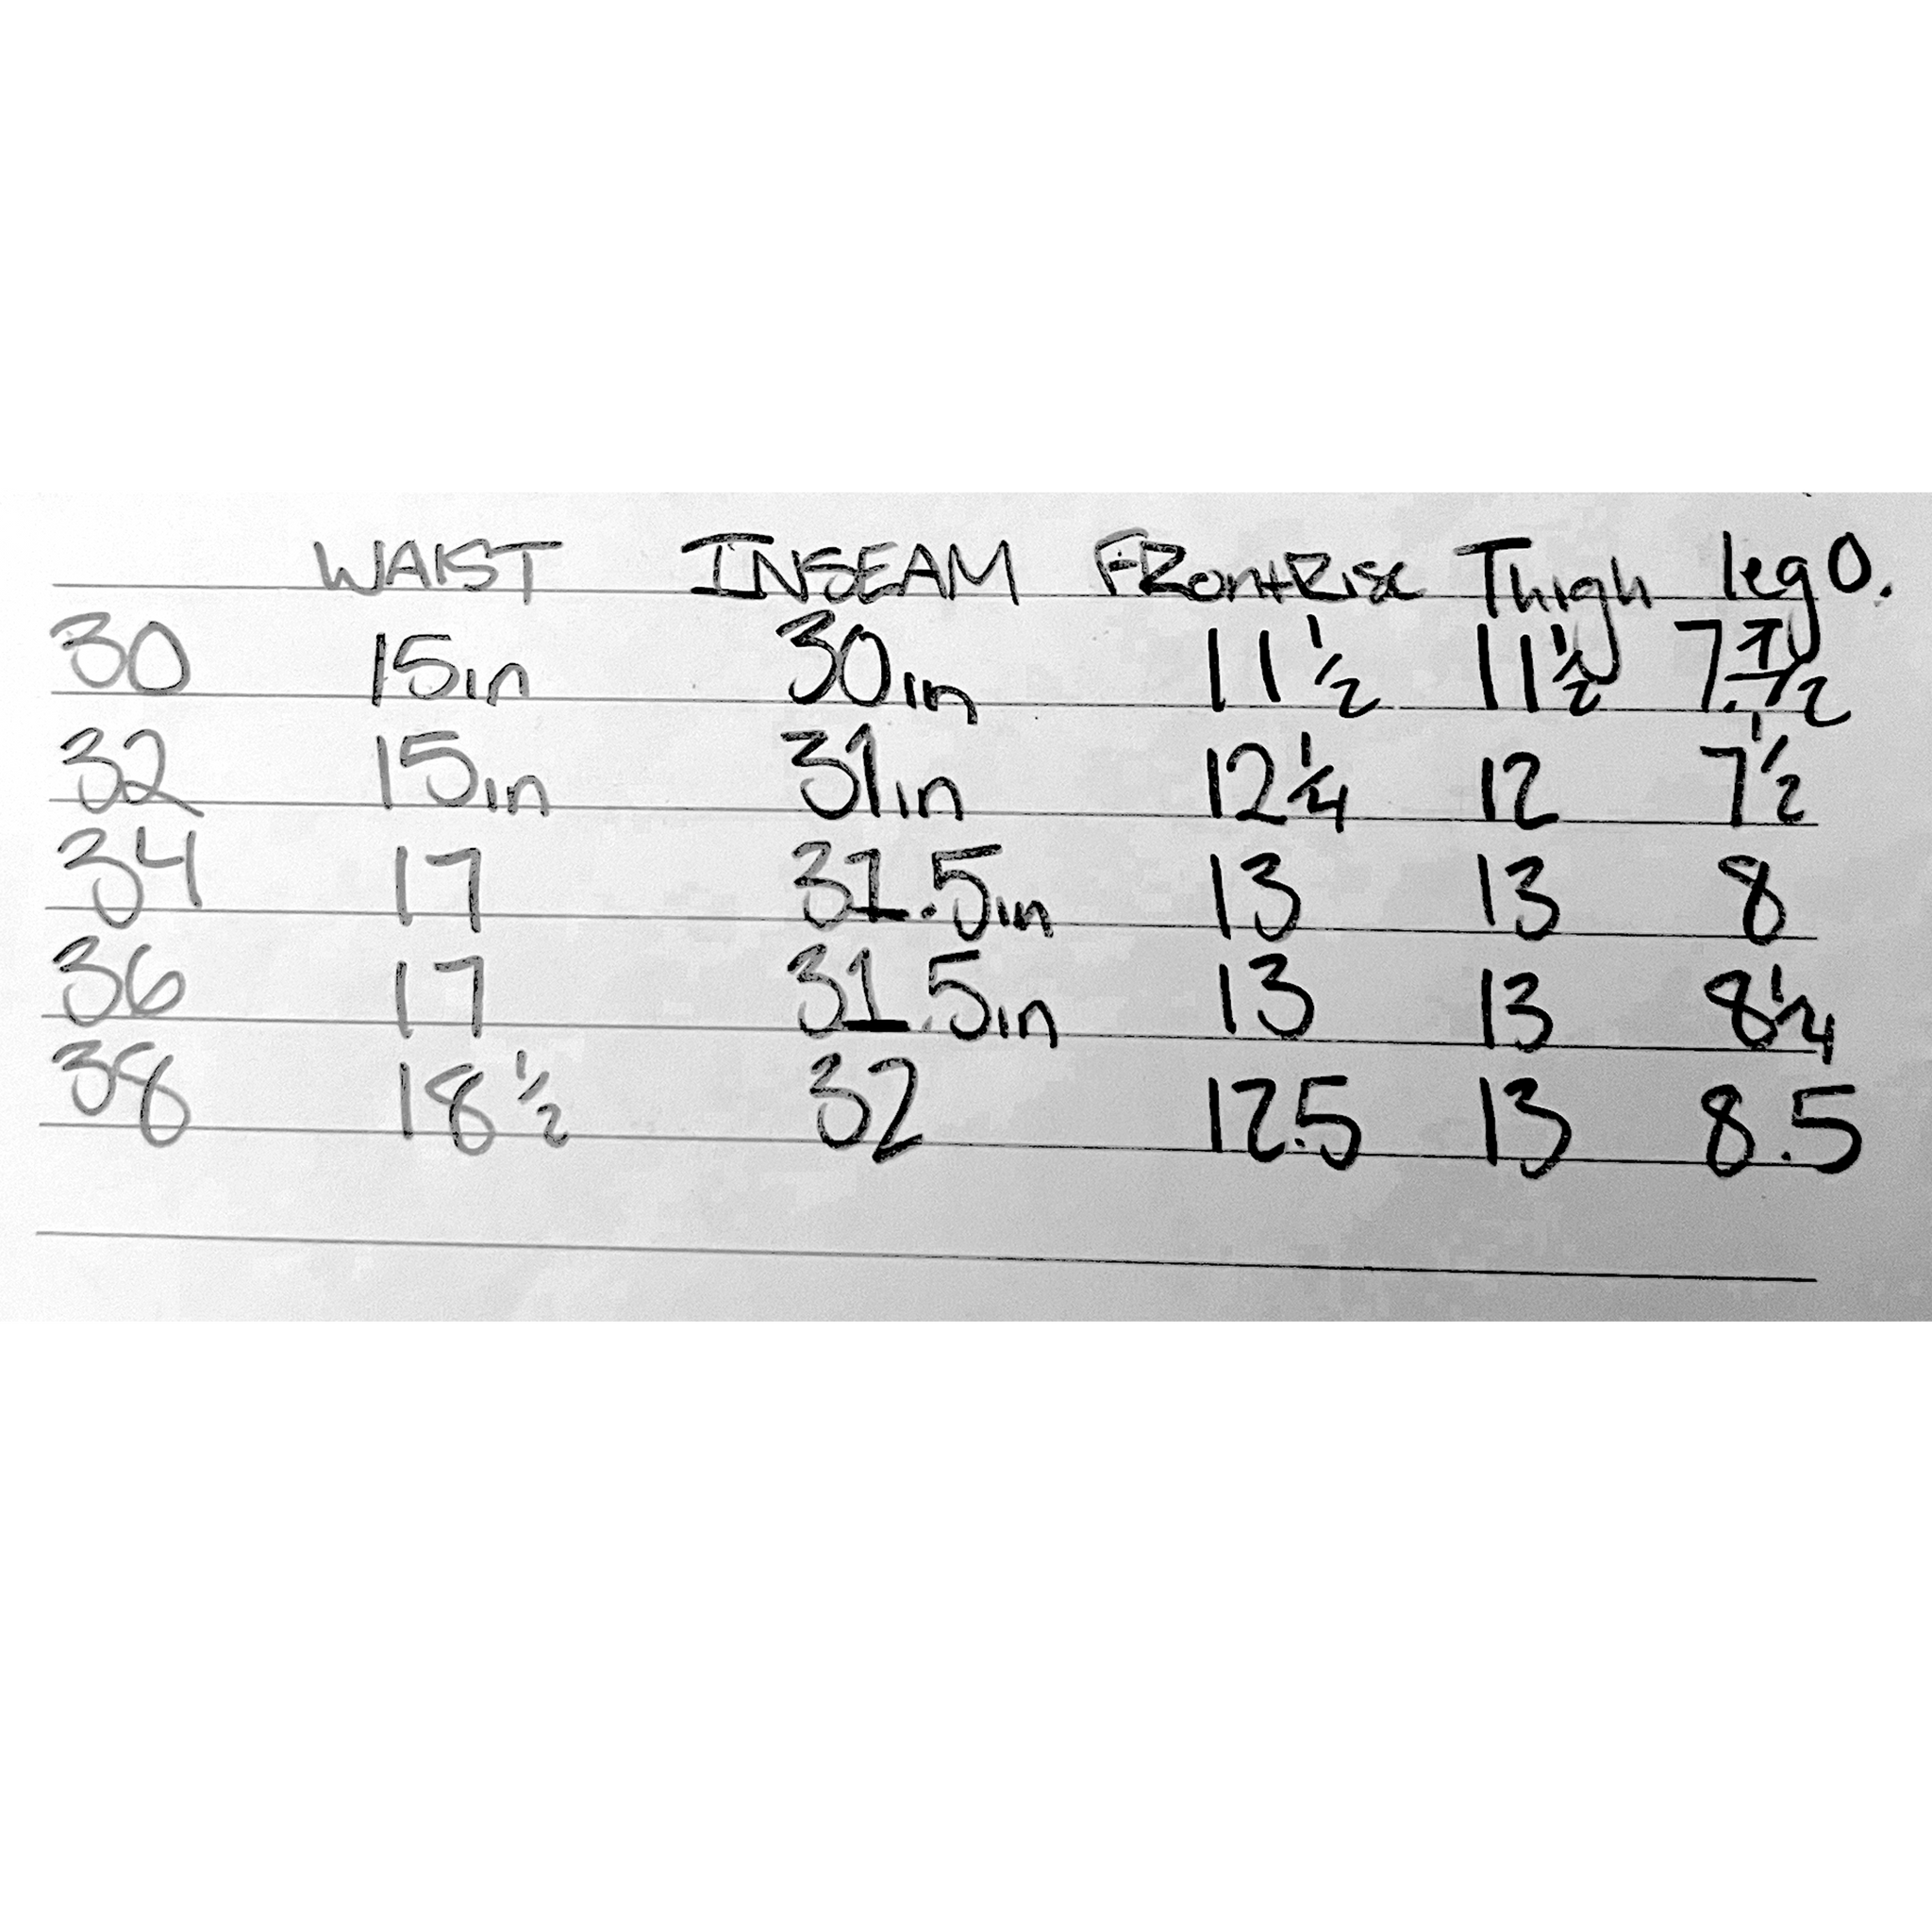 WAIST INSEAM FRontRise Thigh leg O.
30 15in 30in 11 1/2 11 1/2 7.1/2
32 15in 31in 12 1/4 12 7 1/2
34 17 31.5in 13 13 8
36 17 31.5in 13 13 8 1/4
38 18 1/2 32 12.5 13 8.5